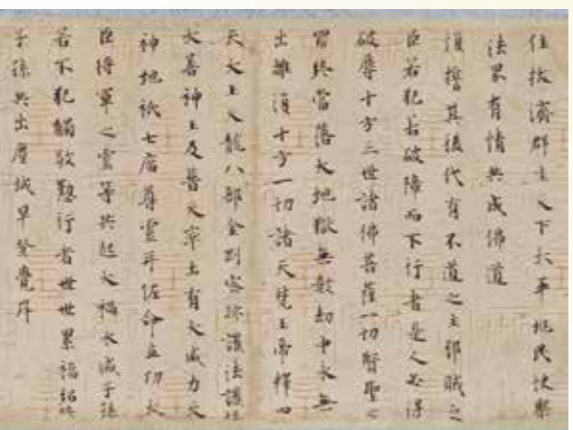 住拯濟群生天下太平兆民快樂
法界有情共成佛道
須擔其後代有不道之主邪賊之
臣若犯若破障而下行者是人必得
破辱十方三世諸佛菩薩一切賢聖之
罪終當落大地獄無數劫中永無
出離須十方一切諸天梵王帝釋四
天大王天龍八部金剛密跡護法護塔
大善神王及普天率土有大威力天
神地祇七廟尊靈并佐命立功大
臣將軍之靈等共起大禍永滅子孫
若不犯觸敬懃行者世世累福紹
子孫共出塵城早登覺岸